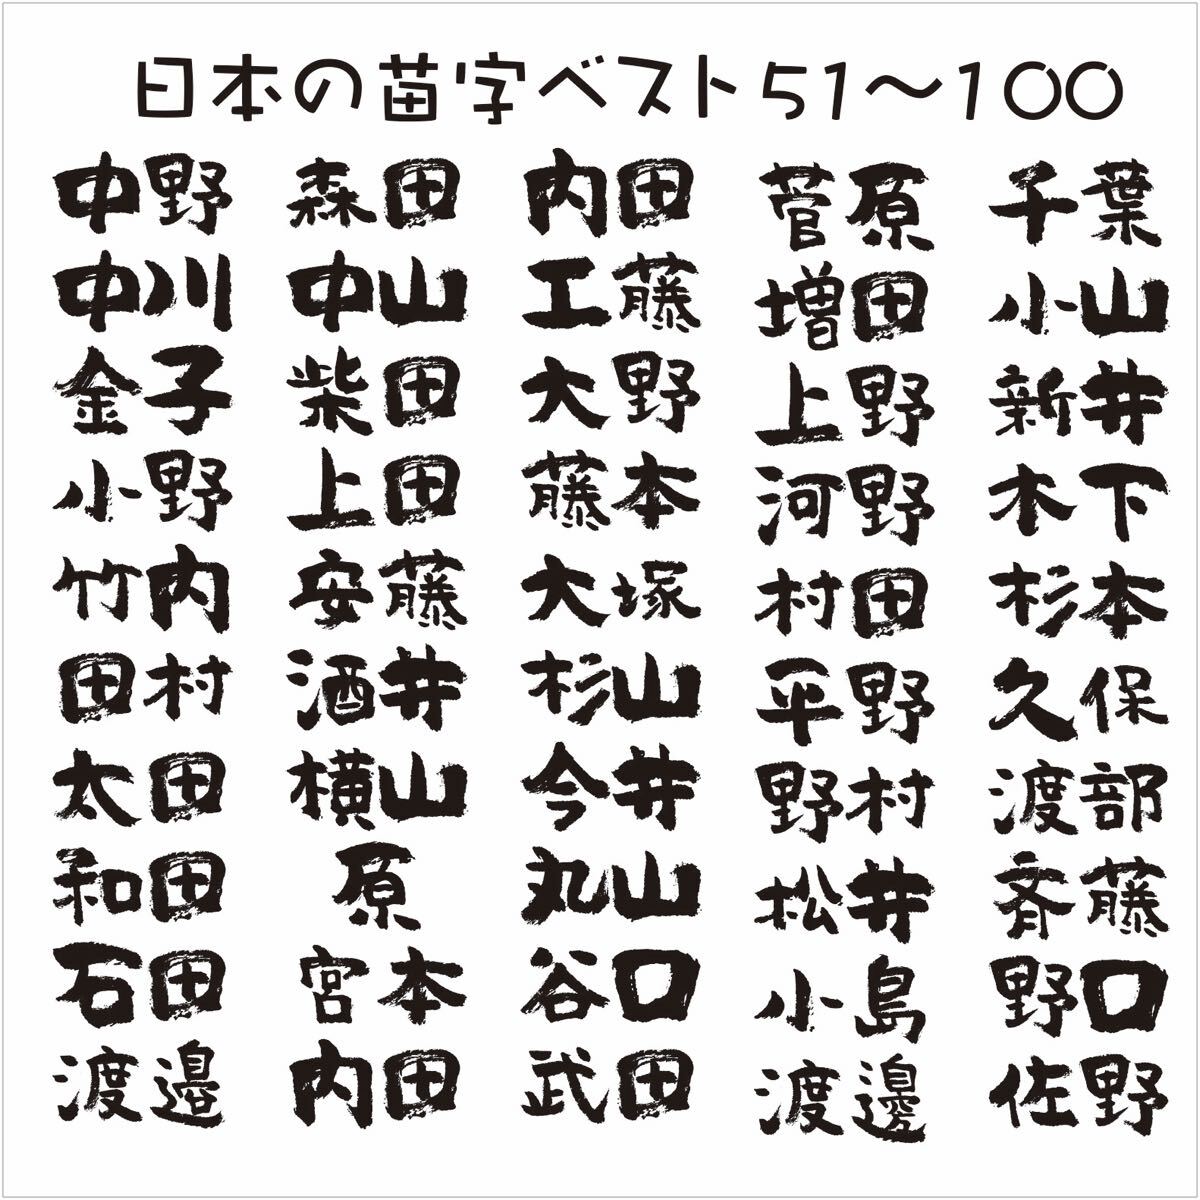 日本の苗字ベスト51〜100
中野 森田 内田 菅原 千葉
中川 中山 工藤 増田 小山
金子 柴田 大野 上野 新井
小野 上田 藤本 河野 木下
竹内 安藤 大塚 村田 杉本
田村 酒井 杉山 平野 久保
太田 横山 今井 野村 渡部
和田 原 丸山 松井 斉藤
石田 宮本 谷口 小島 野口
渡邉 内田 武田 渡邊 佐野